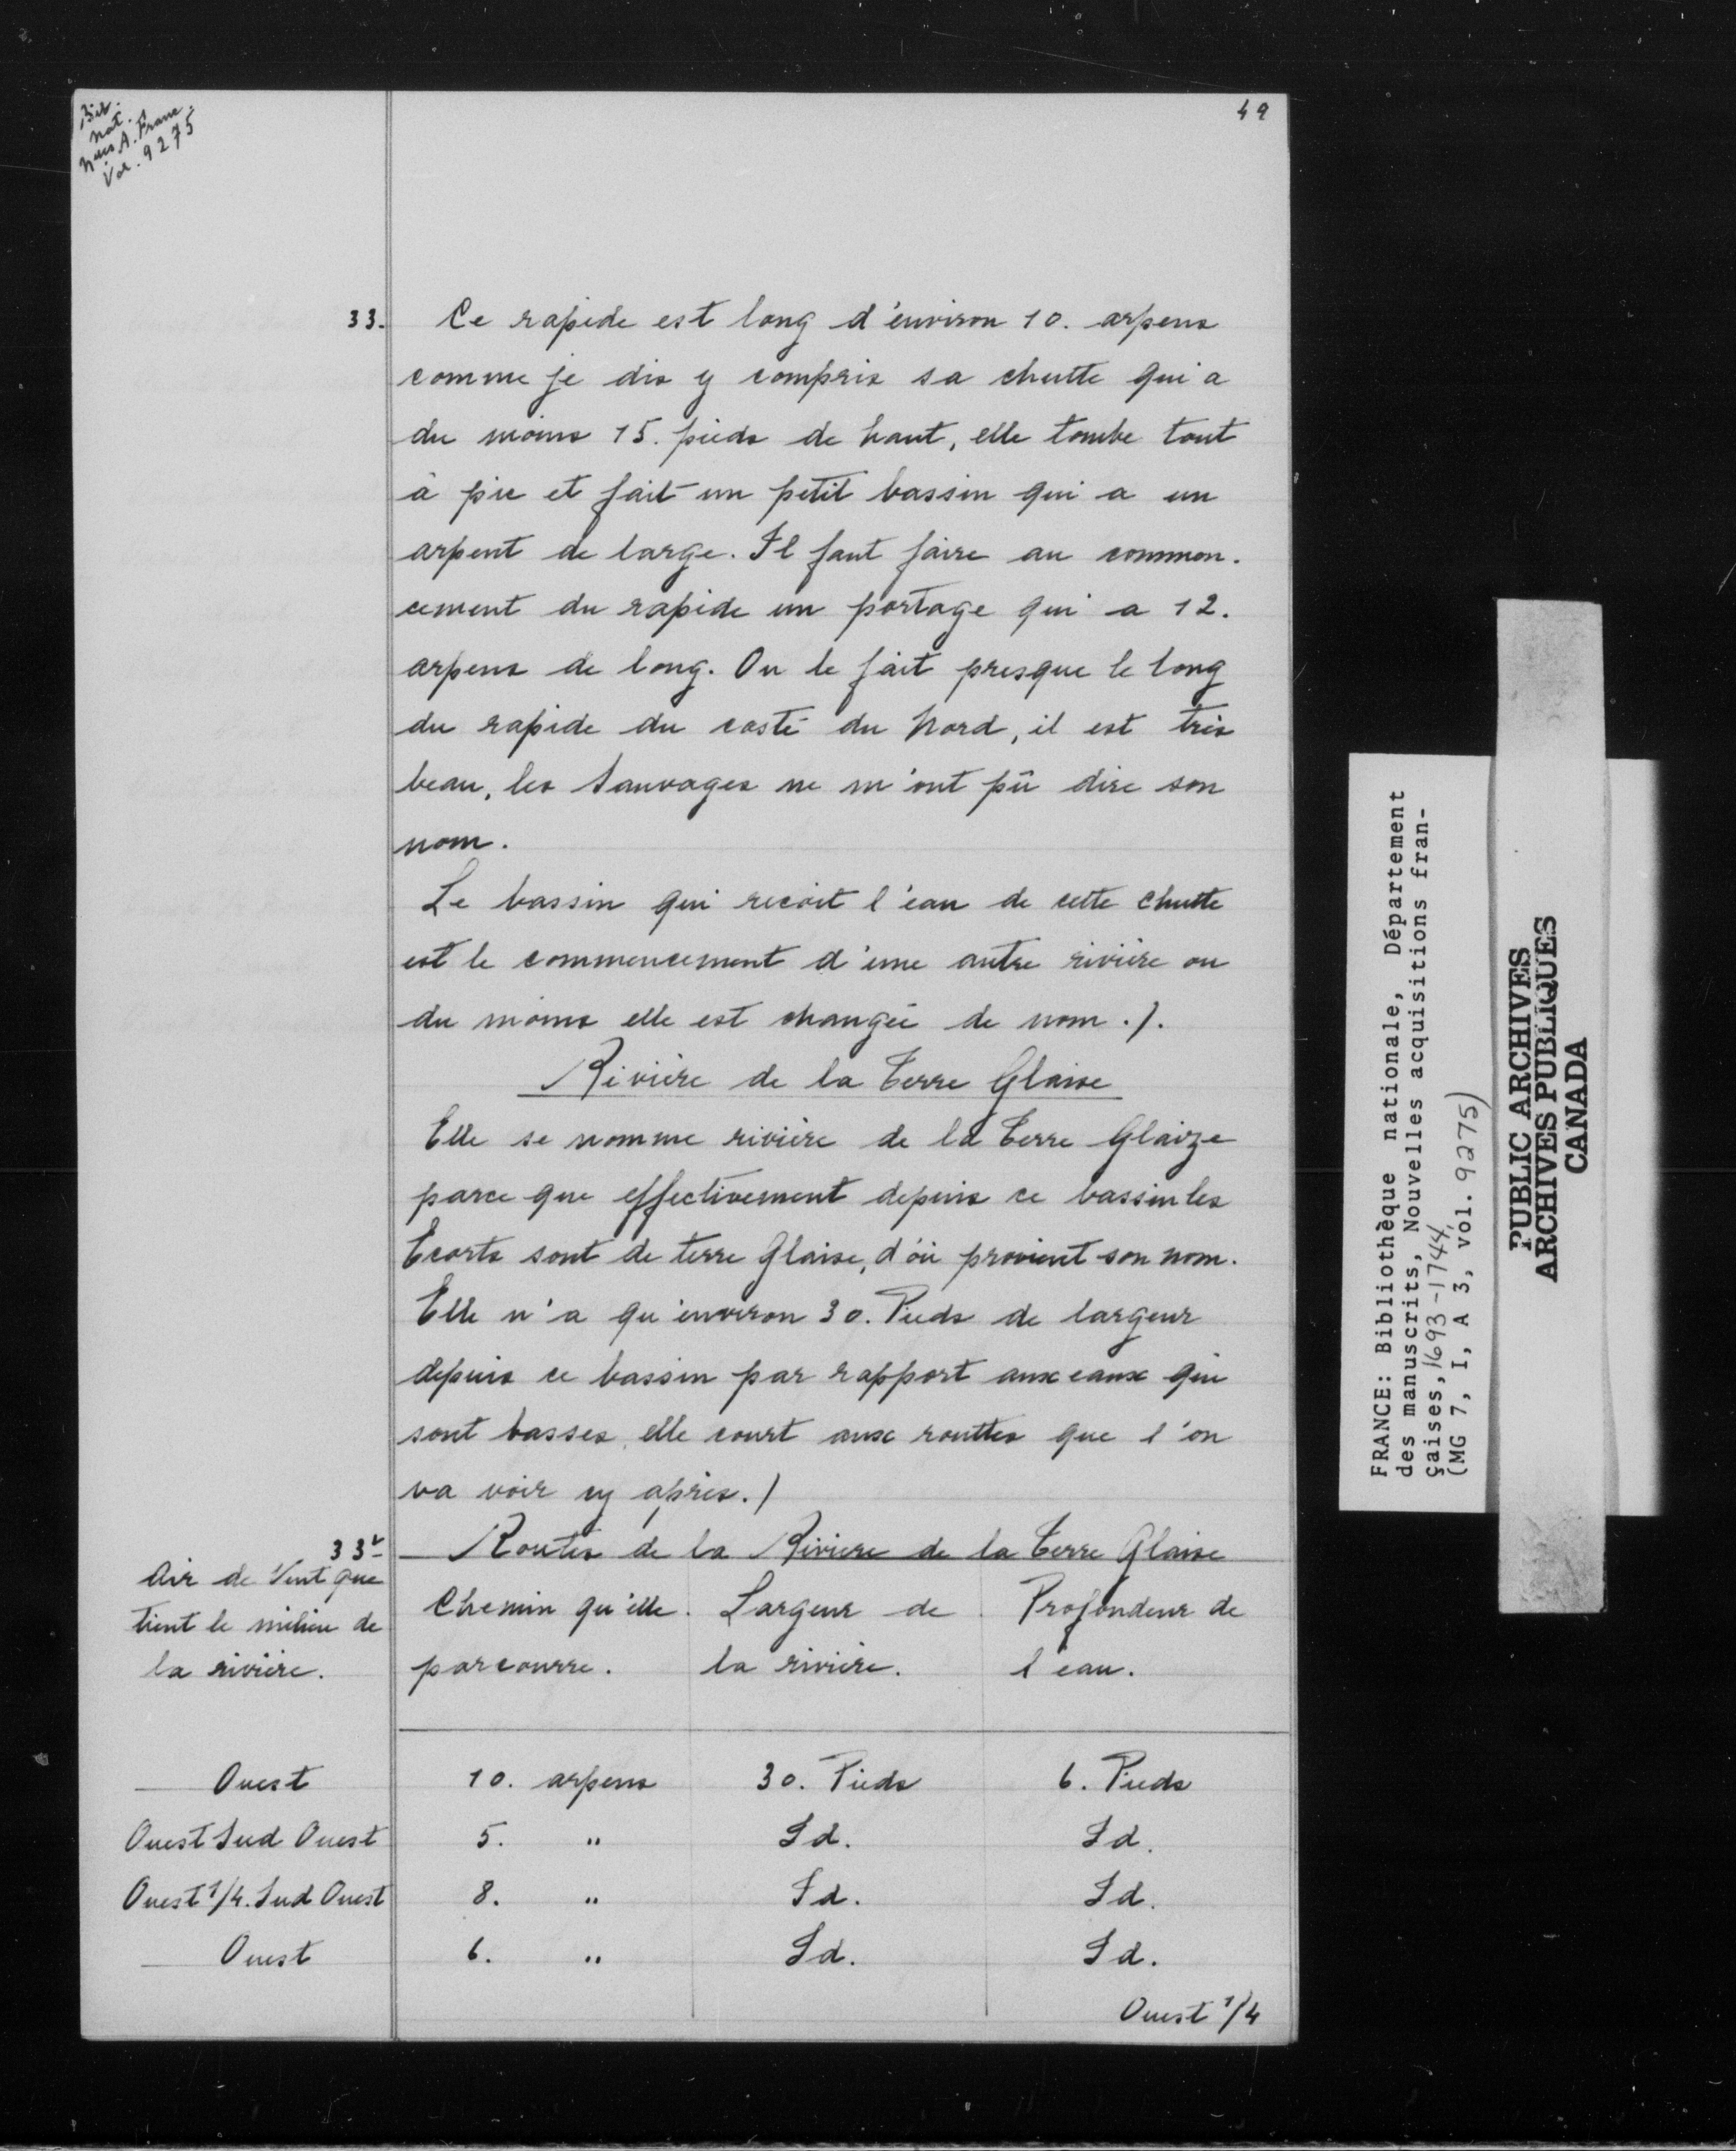 Bib.
nat.
Nlles A. Franc.
Vol. 9275
49
33. Ce rapide est long d'environ 10. arpens
comme je dis y compris sa chutte qui a
du moins 15. pieds de haut, elle tombe tout
à pic et fait un petit bassin qui a un
arpent de large. Il faut faire au common-
cement du rapide un portage qui a 12.
arpens de long. On le fait presque le long
du rapide du costé du Nord, il est très
beau, les Sauvages ne m'ont pû dire son
nom.
Le bassin qui recoit l'eau de cette chutte
est le commencement d'une autre rivière ou
du moins elle est changée de nom./.
Rivière de la Terre Glaise
Elle se nomme rivière de la Terre Glaize
parce que effectivement depuis ce bassin les
Ecorts sont de terre Glaise, d'où provient son nom.
Elle n'a qu'environ 30. Pieds de largeur
depuis ce bassin par rapport aux eaux qui
sont basses, elle court aux routtes que l'on
va voir cy après./
33v Routes de la Riviere de la Terre Glaise
Air de Vent que
tient le milieu de
la rivière.
Chemin qu'elle
parcourre.
Largeur de
la rivière.
Profondeur de
l'eau.
Ouest 10. arpens 30. Pieds 6. Pieds
Ouest Sud Ouest 5. " Id. Id.
Ouest 1/4. Sud Ouest 8. " Id. Id.
Ouest 6. " Id. Id.
Ouest 1/4
FRANCE: Bibliothèque nationale, Département
des manuscrits, Nouvelles acquisitions fran-
çaises, 1693-1744
(MG 7, I, A 3, vol. 9275)
PUBLIC ARCHIVES
ARCHIVES PUBLIQUES
CANADA